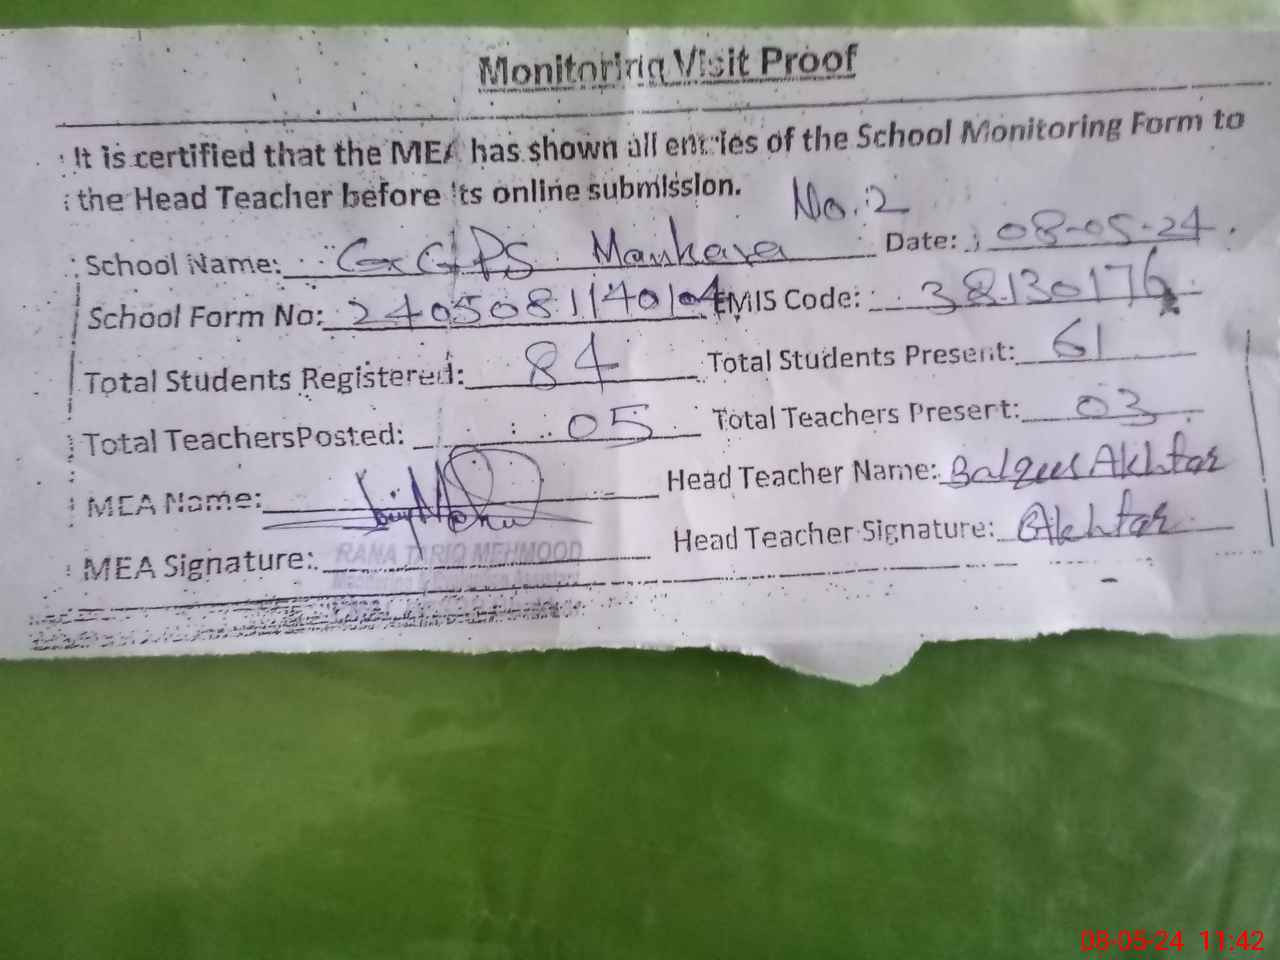 Monitoring Visit Proof
It is certified that the MEA has shown all entries of the School Monitoring Form to
the Head Teacher before its online submission.
No.2
School Name: GGPS Mankera Date: 08-05-24
School Form No: 2405081140104 EMIS Code: 38130176
Total Students Registered: 84 Total Students Present: 61
Total TeachersPosted: 05 Total Teachers Present: 03
MEA Name: Head Teacher Name: Balqees Akhtar
MEA Signature: RANA TARIQ MEHMOOD Head Teacher Signature: BAkhtar
Monitoring & Evaluation Assistant
08-05-24 11:42